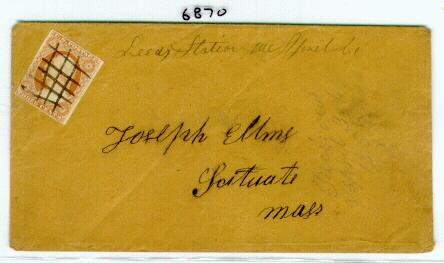 6870
Leeds Station Me April 6
Joseph Ellms
Scituate
Mass